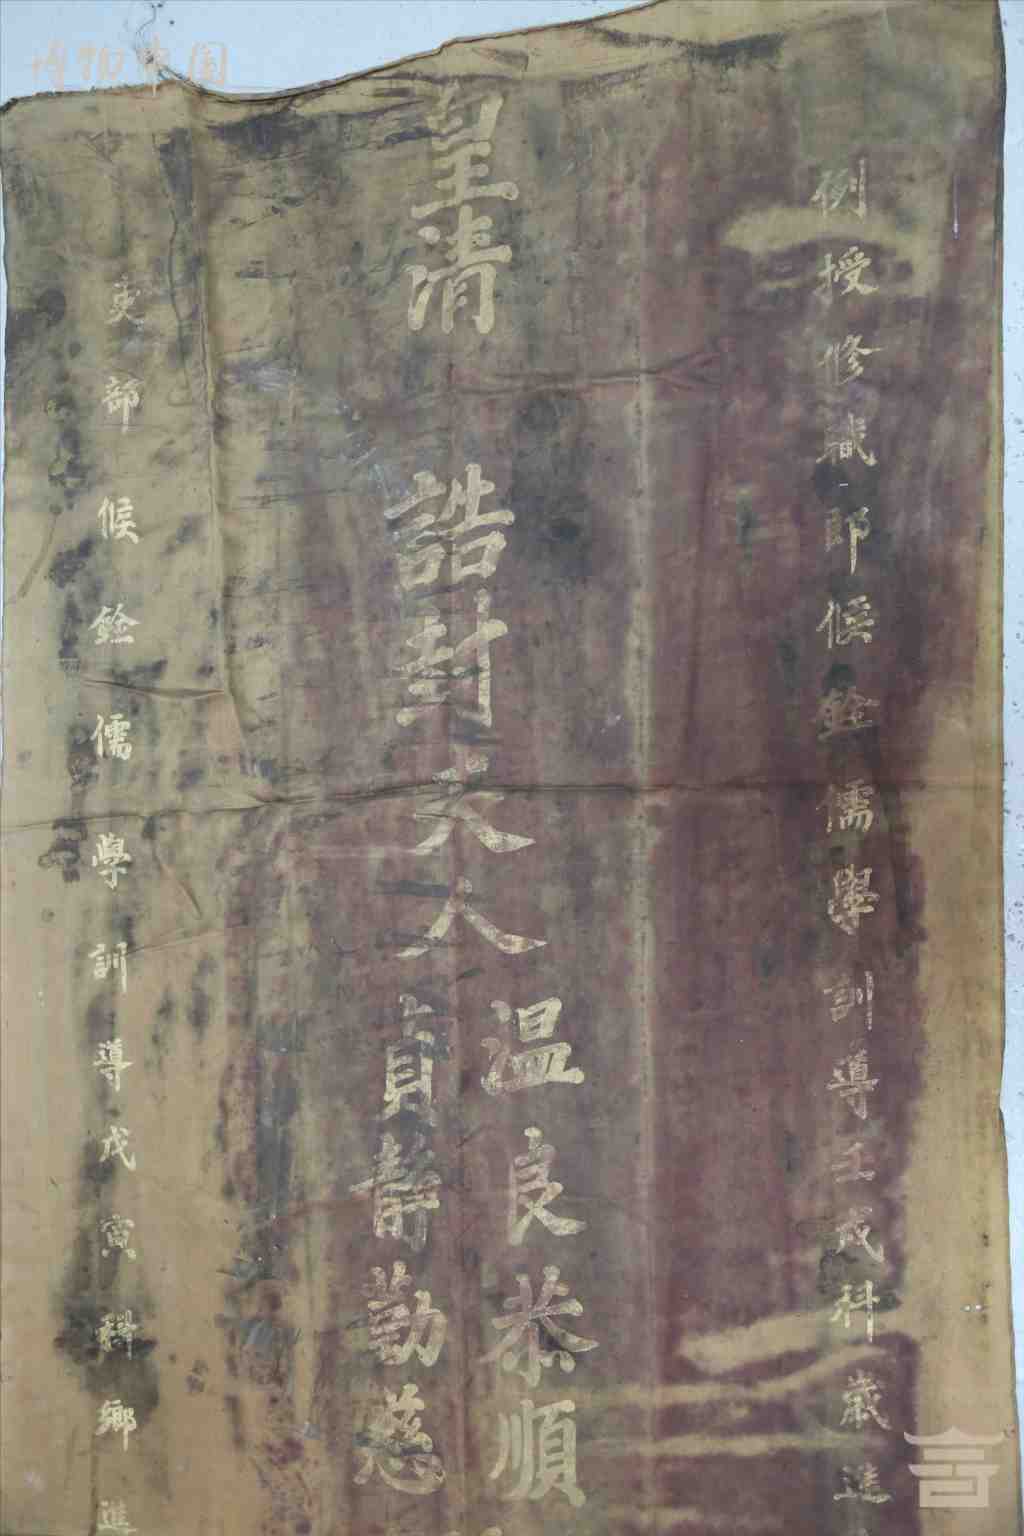 例授修職郎候銓儒學訓導壬戌科歲進
皇清
誥封夫人
温良恭順
貞静勤慈
吏部候銓儒學訓導戊寅科鄉進
博物中国